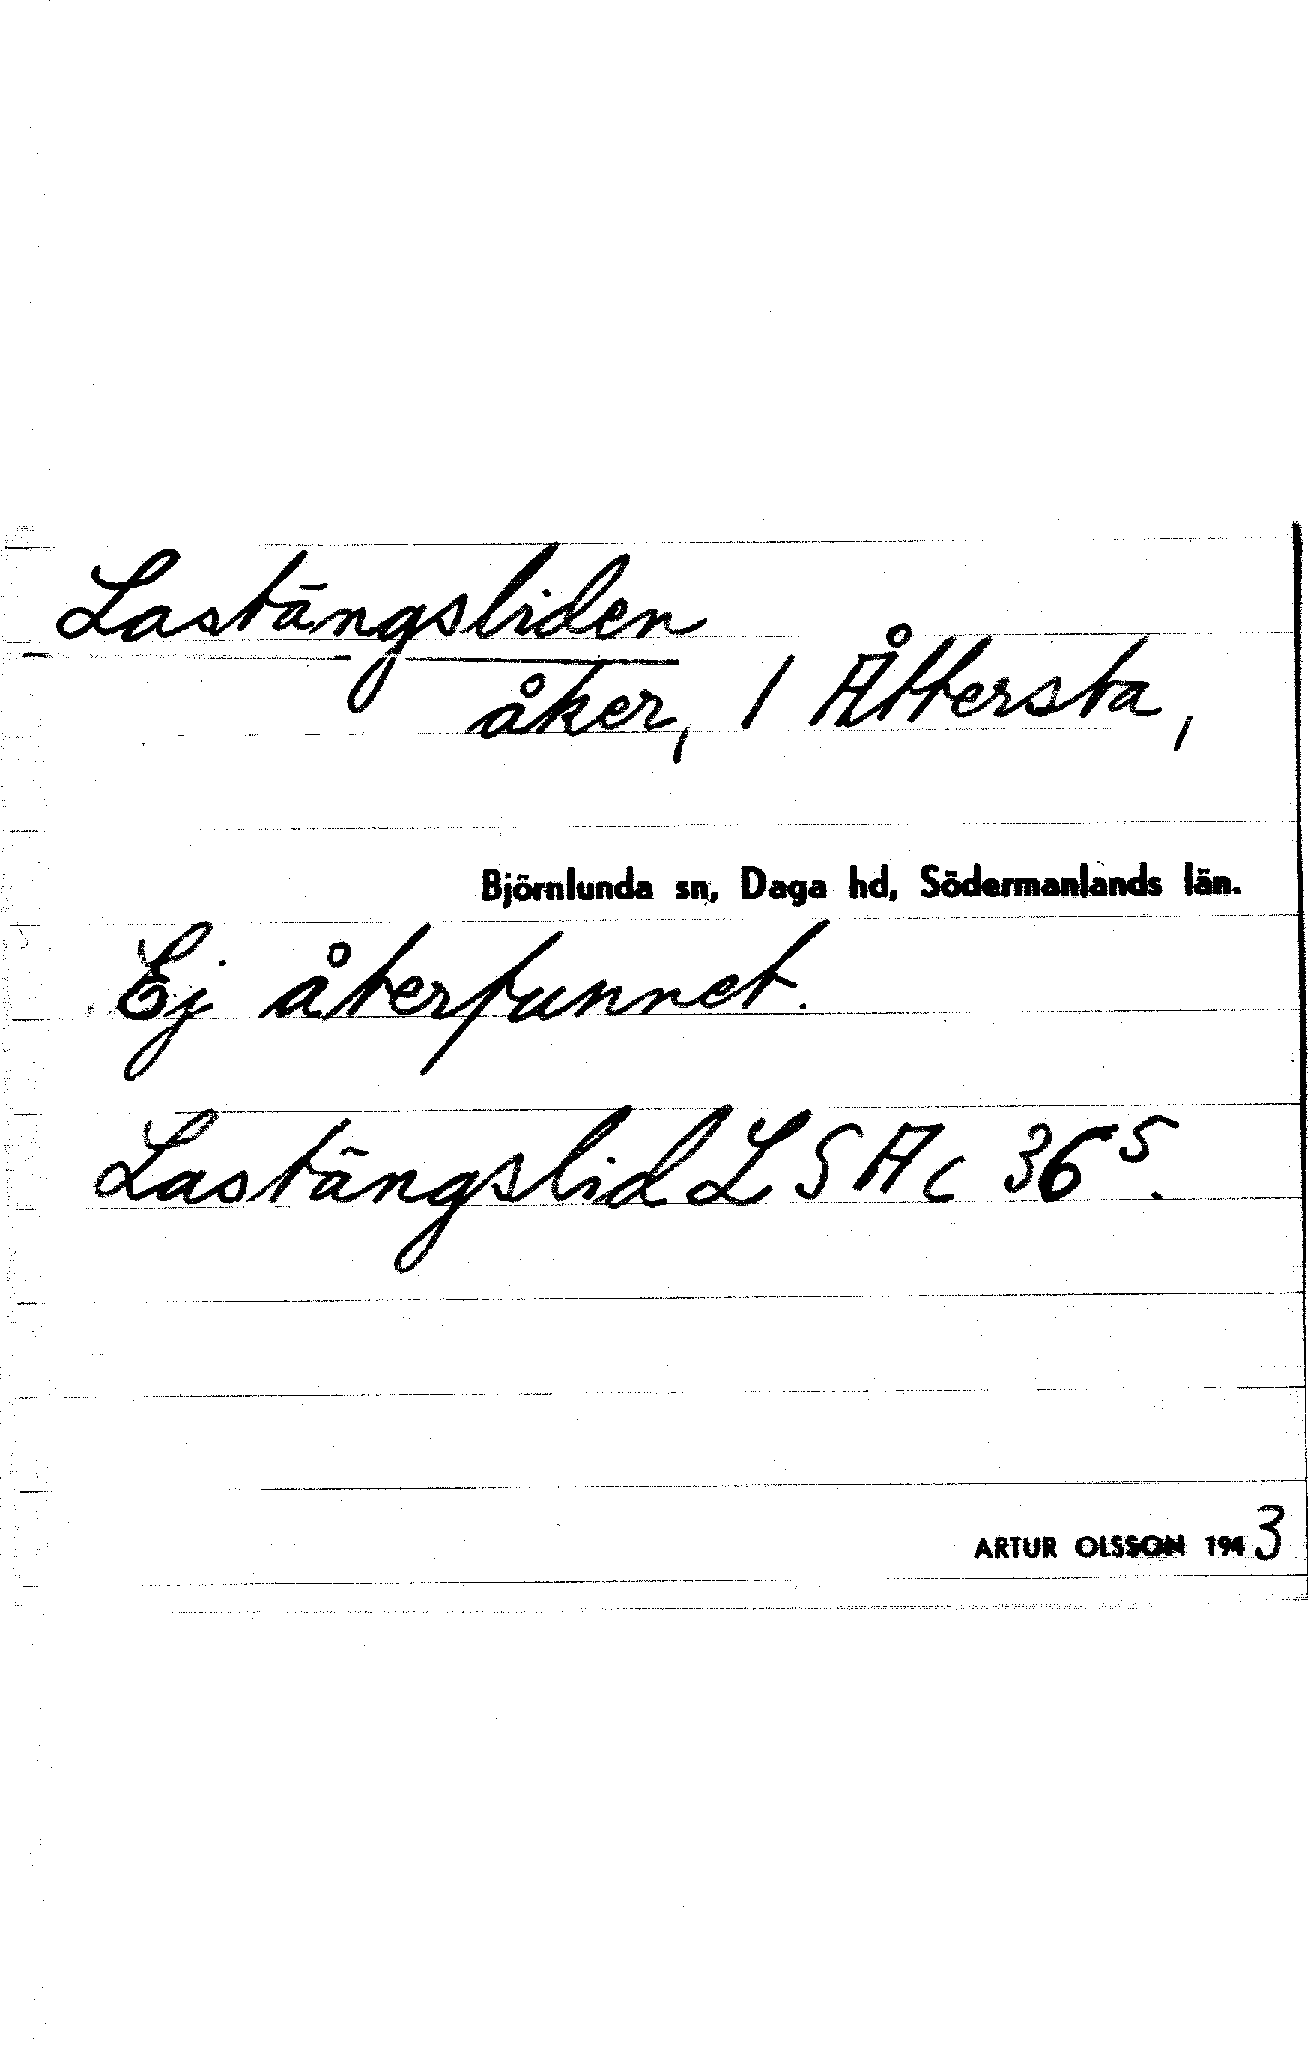 Lastängsliden
åker, 1 Åttersta,
Björnlunda sn, Daga hd, Södermanlands län.
Ej återfunnet.
Lastängslid LSA c 36⁵.
ARTUR OLSSON 1943